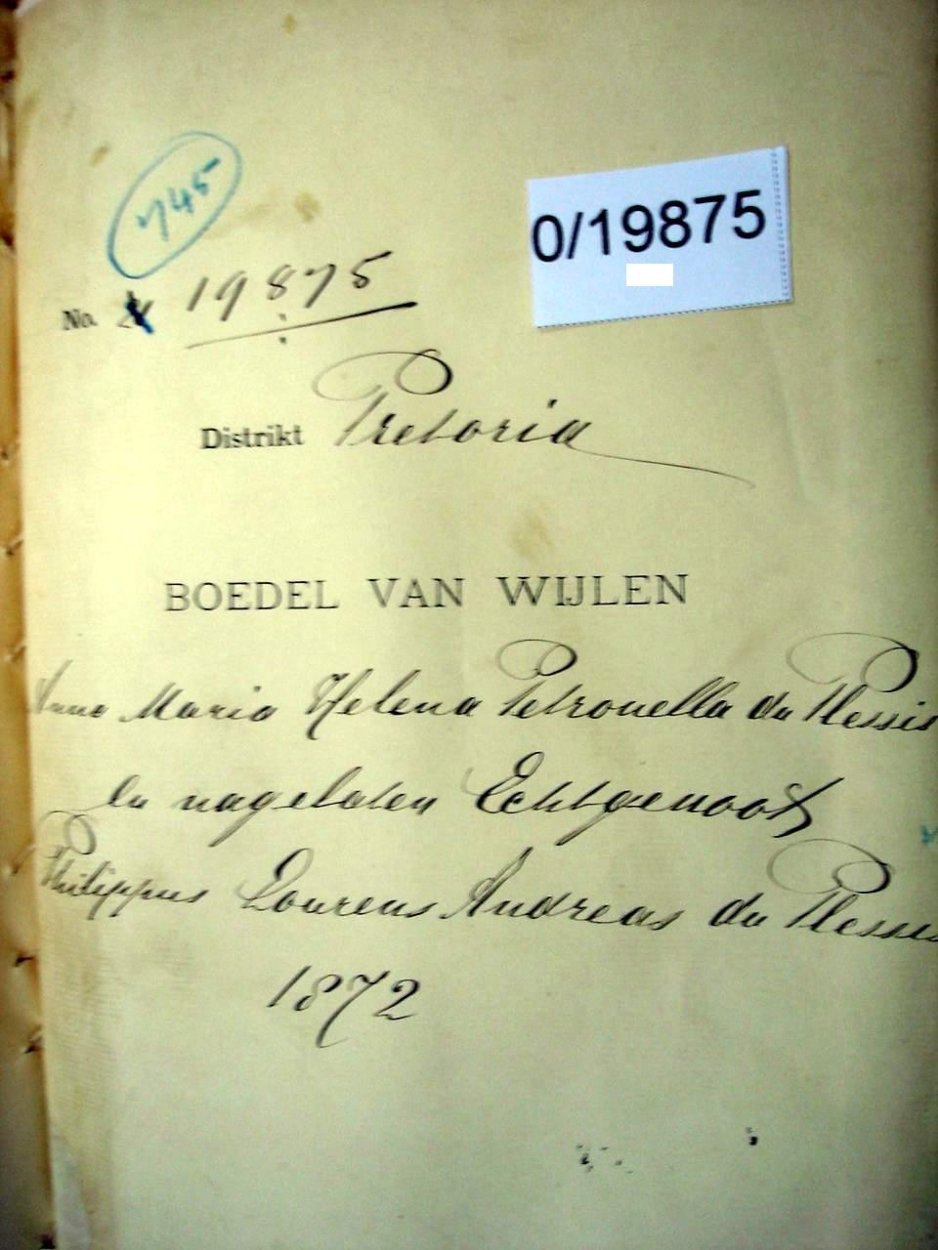 745
0/19875
No. 19875
Distrikt Pretoria
BOEDEL VAN WIJLEN
Anna Maria Helena Petronella du Plessis
en nagelaten Echtgenoot
Philippus Lourens Andreas du Plessis
1872